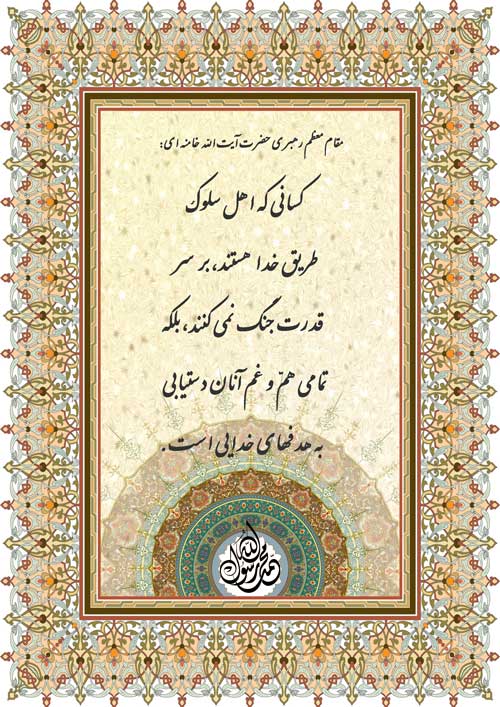 مقام معظم رهبری حضرت آیت الله خامنه ای:
کسانی که اهل سلوک
طریق خدا هستند، بر سر
قدرت جنگ نمی کنند، بلکه
تمامی همّ و غم آنان دستیابی
به هدفهای خدایی است.
محمد رسول الله